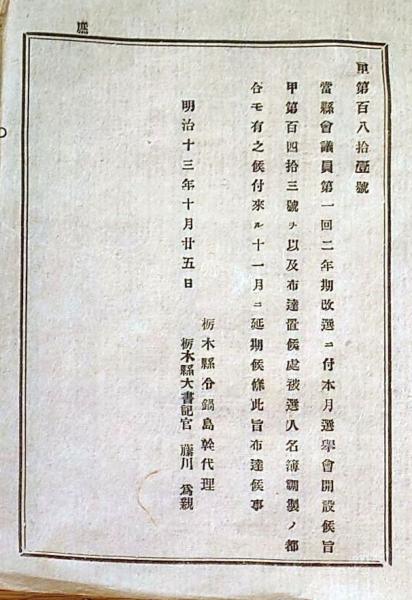 庶
甲第百八拾壹號
當縣會議員第一回二年期改選ニ付本月選擧會開設候旨
甲第百四拾三號ヲ以及布達置候處被選人名簿調製ノ都
合モ有之候付來ル十一月ニ延期候條此旨布達候事
明治十三年十月廿五日
栃木縣令鍋島幹代理
栃木縣大書記官 藤川爲親